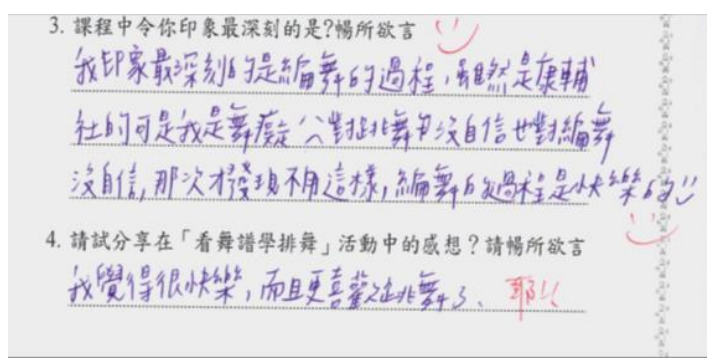 3. 課程中令你印象最深刻的是?暢所欲言
我印象最深刻的是編舞的過程,雖然是康輔
社的可是我是舞癡 對排舞 沒自信也對編舞
沒自信,那次才發現不用這樣,編舞的過程是快樂的
4. 請試分享在「看舞譜學排舞」活動中的感想?請暢所欲言
我覺得很快樂,而且更喜歡 排舞了、耶!!